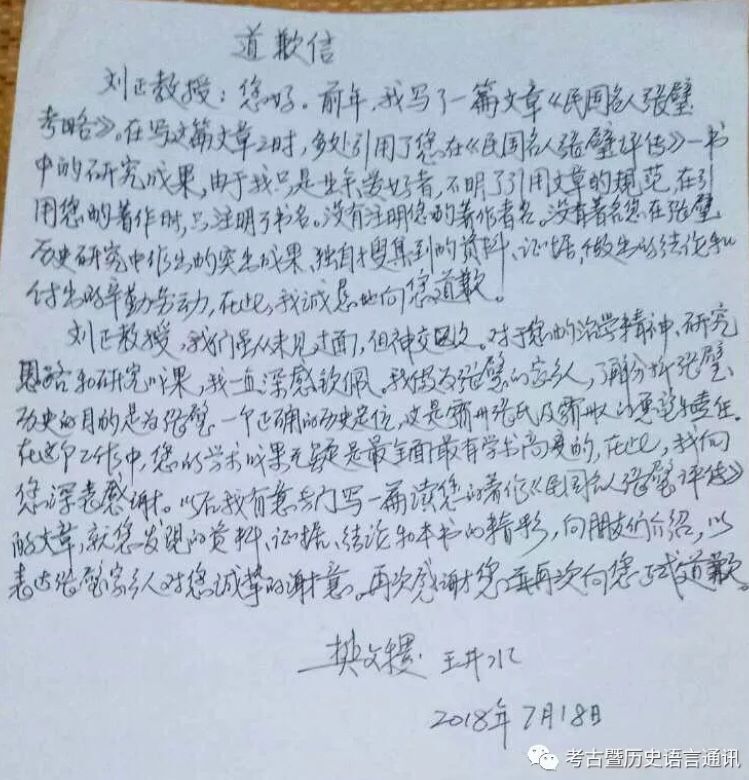 道歉信
刘正教授：您好。前年，我写了一篇文章《民国名人张璧
考略》。在写这篇文章之时，多处引用了您在《民国名人张璧评传》一书
中的研究成果，由于我只是业余爱好者，不明了引用文章的规范，在引
用您的著作时，只注明了书名。没有注明您的著作者名。没有著名您在张璧
历史研究中作出的突出成果、独自搜集到的资料、证据，做出的结论和
付出的辛勤劳动，在此，我诚恳地向您道歉！
刘正教授，我们虽从未见过面，但神交已久。对于您的治学精神、研究
思路和研究成果，我一直深感钦佩。我作为张璧的家乡人，了解分析张璧
历史的目的是为张璧一个正确的历史定位，这是霸州张氏及霸州人的愿望与责任。
在这个工作中，您的学术成果无疑是最全面最有学术高度的，在此，我向
您深表感谢。以后我有意专门写一篇读您的著作《民国名人张璧评传》
的文章，就您发现的资料、证据、结论和本书的精彩，向朋友们介绍，以
表达张璧家乡人对您诚挚的谢意。再次感谢您并再次向您正式道歉。
樊文 王井
2018年7月18日
考古暨历史语言通讯